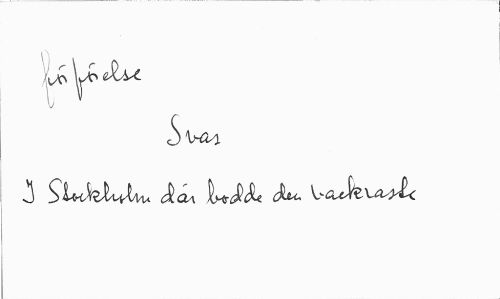 förförelse
Svar
I Stockholm där bodde den vackraste